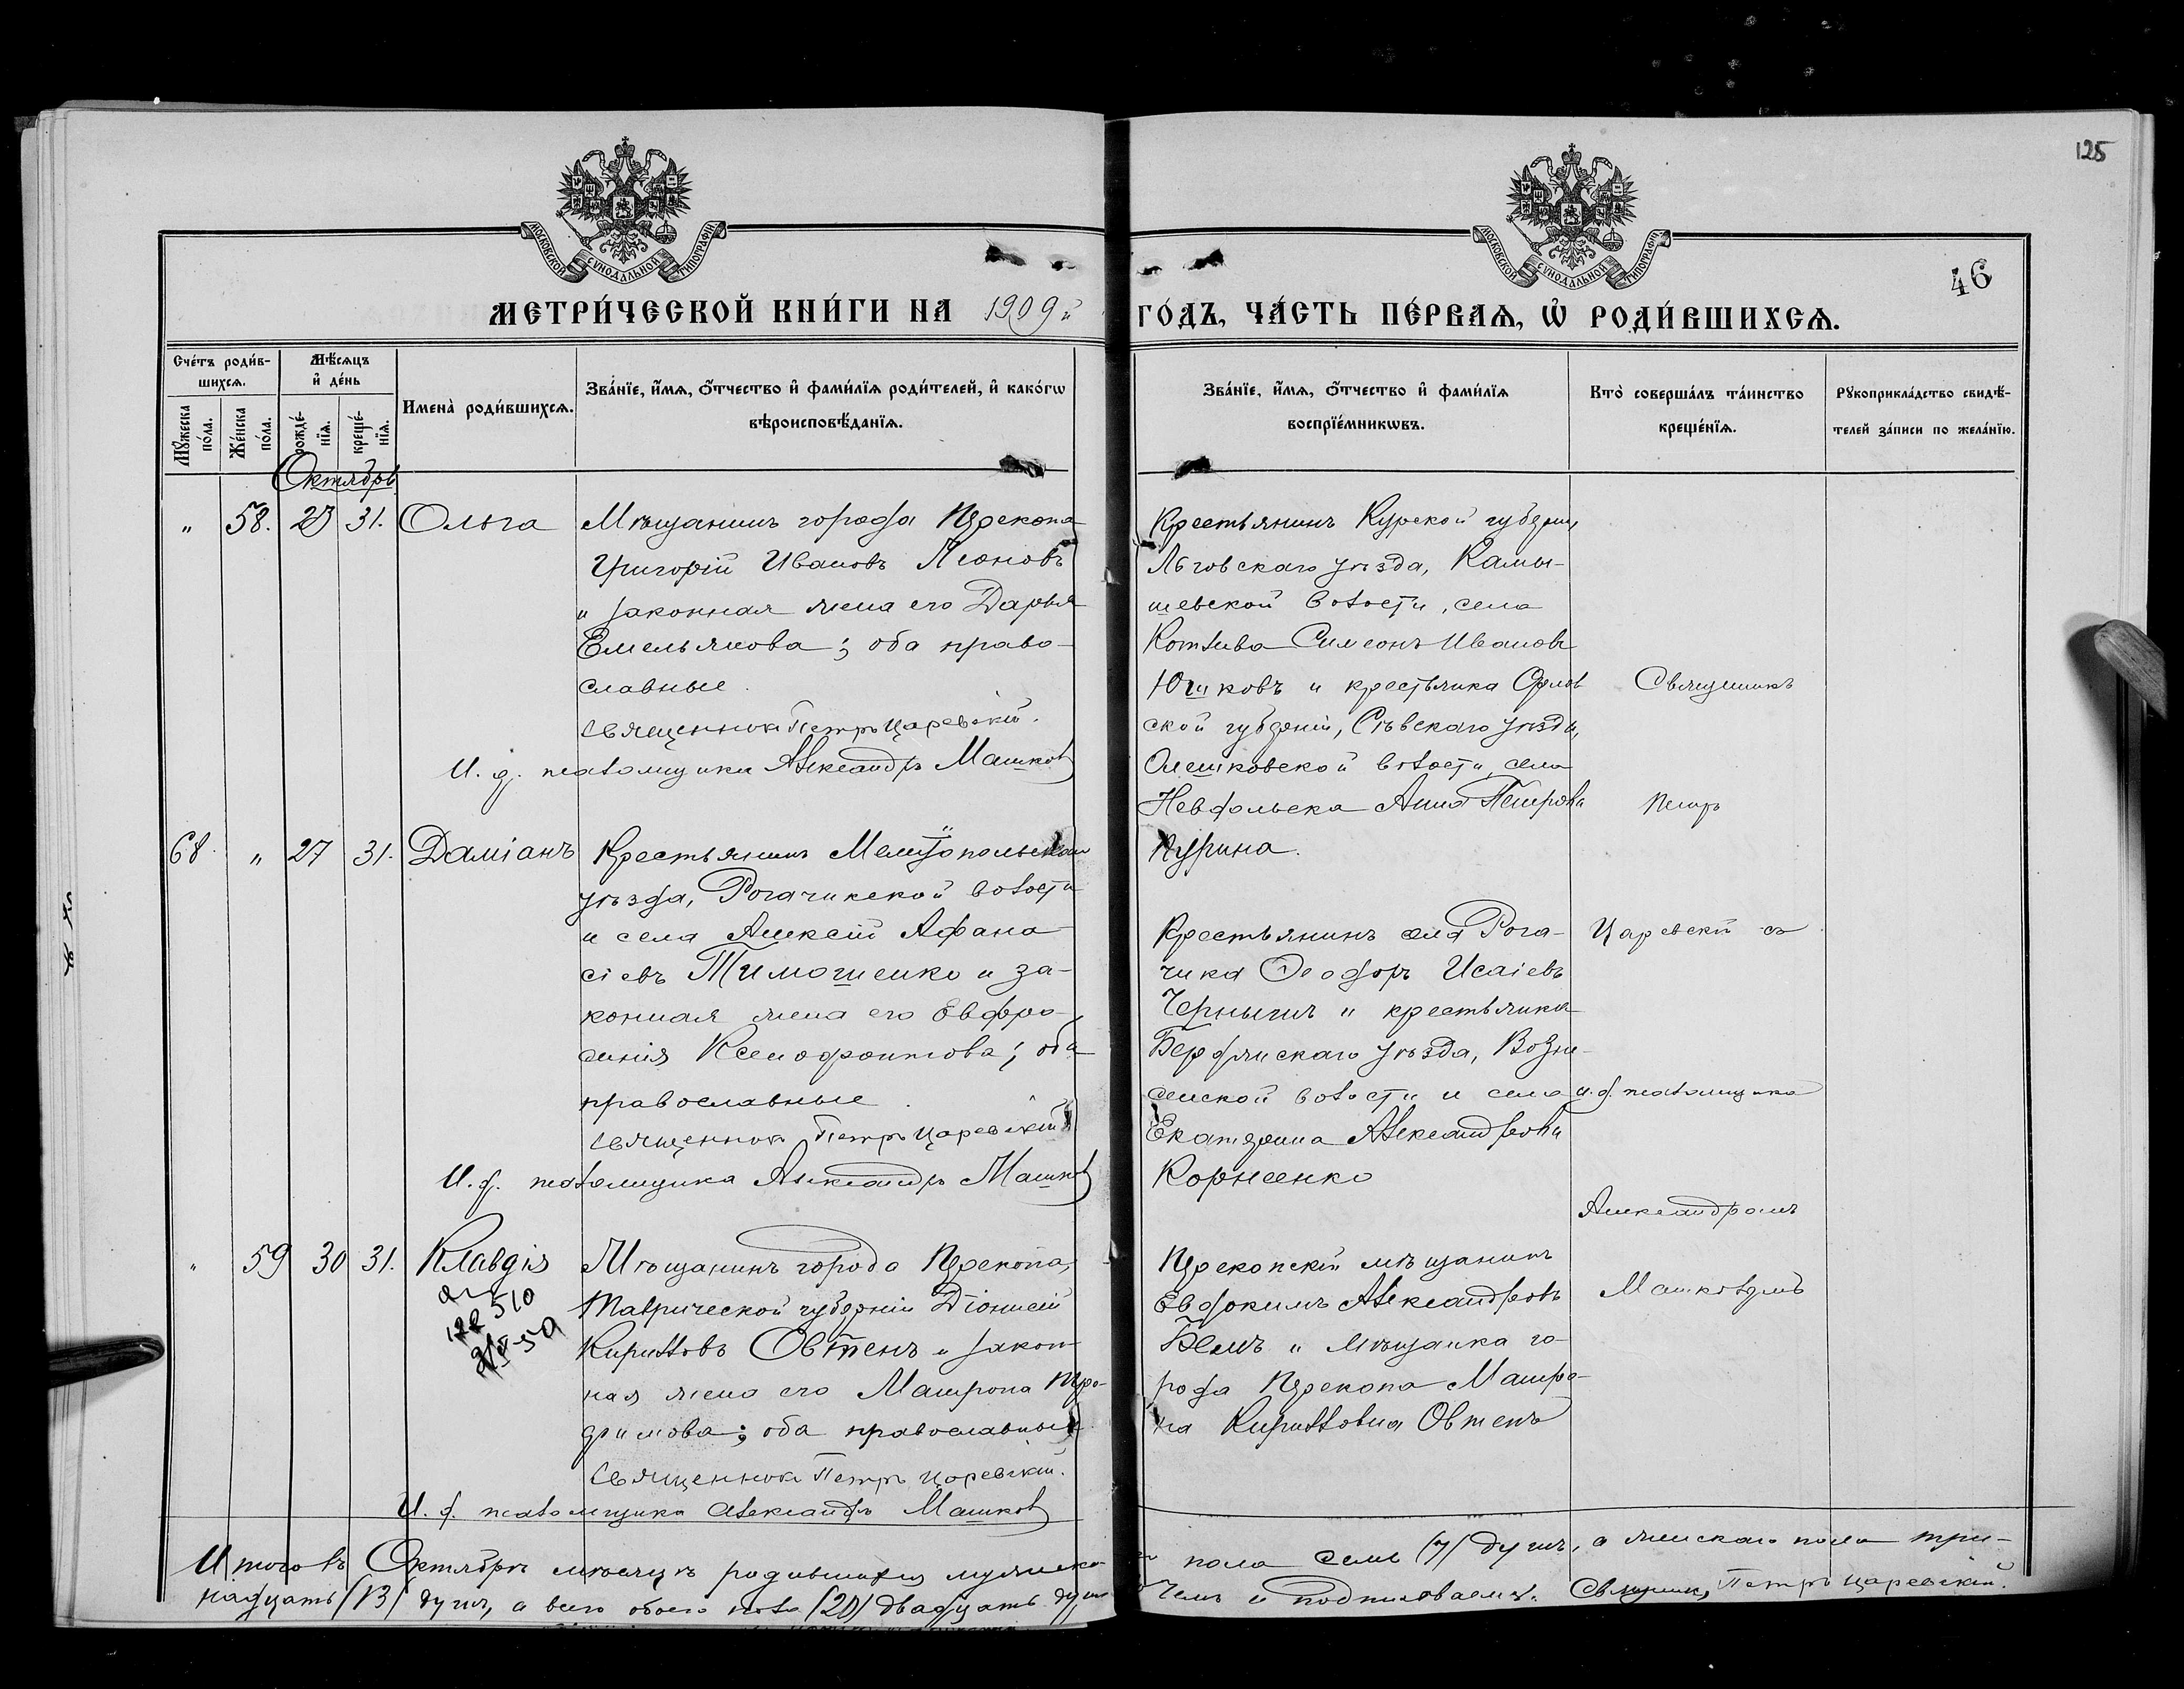 125
46
МОСКОВСКОЙ СУНОДАЛЬНОЙ ТИПОГРАФІИ
МОСКОВСКОЙ СУНОДАЛЬНОЙ ТИПОГРАФІИ
МЕТРИ́ЧЕСКОЙ КНИ́ГИ НА 1909й ГО́ДЪ, ЧА́СТЬ ПЕ́РВАѦ, Ѡ҆ РОДИ́ВШИХСѦ.
Сче́тъ роди́в-
шихсѧ.
Мꙋ́жеска по́ла.
Же́нска по́ла.
Мѣ́сѧцъ
и҆ де́нь
рожде́-
нїѧ.
креще́-
нїѧ.
Имена̀ роди́вшихсѧ.
Зва́нїе, и҆́мѧ, ѻ҆́тчество и҆ фами́лїѧ роди́телей, и҆ како́гѡ
вѣроисповѣ́данїѧ.
Зва́нїе, и҆́мѧ, ѻ҆́тчество и҆ фами́лїѧ
воспрїе́мникѡвъ.
Кто̀ соверша́лъ та́инство
креще́нїѧ.
Рꙋкоприкла́дство свидѣ́-
телей за́писи по жела́нїю.
Октябрь
" 58. 23 31. Ольга
Мѣщанинъ города Перекопа
Григорій Ивановъ Леоновъ
и законная жена его Дарья
Емельянова; оба право-
славные.
Священникъ Петръ Царевскій.
И. д. псаломщика Александръ Машковъ
Крестьянинъ Курской губерніи,
Льговскаго уѣзда, Камы-
шевской волости, села
Симеонъ Ивановъ
Юшковъ и крестьянка Орлов
ской губерніи, Сѣвскаго уѣзда,
волости, села
Анна Петрова
Курина.
68 " 27 31. Даміанъ
Крестьянинъ Мелитопольскаго
уѣзда, Рогачикской волости
и села Алексій Афана-
сіевъ Тимошенко и за-
конная жена его Евфро-
синія Ксенофонтова; оба
православные.
Священникъ Петръ Царевскій
И. д. псаломщика Александръ Машковъ
Крестьянинъ села Рога-
чика Ѳеодоръ Исаіевъ
и крестьянка
Бердянскаго уѣзда, Возне-
сенской волости и села
Екатерина Александрова
Корнеенко
" 59 30 31. Клавдія
Мѣщанинъ города Перекопа,
Таврической губерніи Діонисій
Кирилловъ Овтенъ и закон-
ная жена его Матрона Тро-
фимова; оба православные
Священникъ Петръ Царевскій.
И. д. псаломщика Александръ Машковъ
Перекопскій мѣщанинъ
Евдокимъ Александровъ
Бемъ и мѣщанка го-
рода Перекопа Матро-
на Кириллова Овтенъ
Священникъ
Петръ
Царевскій съ
и. д. псаломщика
Александромъ
Машковымъ
Итого въ Октябрѣ мѣсяцѣ родившихся мужеска пола семь (7) душъ, а женскаго пола три-
надцать (13) душъ, а всего обоего пола (20) двадцать душъ чемъ и подписываемся. Священникъ Петръ Царевскій.